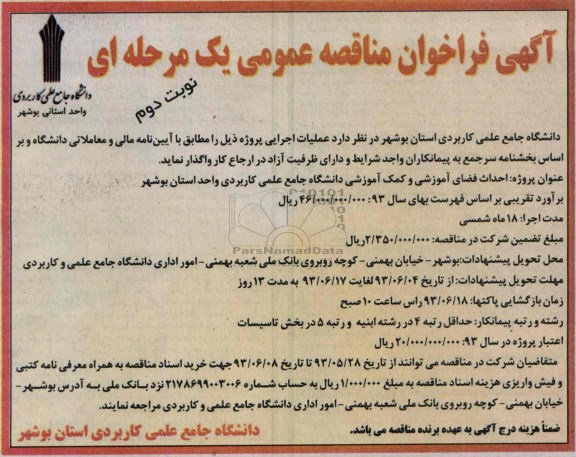 آگهی فراخوان مناقصه عمومی یک مرحله ای
نوبت دوم
دانشگاه جامع علمی کاربردی
واحد استانی بوشهر
دانشگاه جامع علمی کاربردی استان بوشهر در نظر دارد عملیات اجرایی پروژه ذیل را مطابق با آیین‌نامه مالی و معاملاتی دانشگاه و بر
اساس بخشنامه سرجمع به پیمانکاران واجد شرایط و دارای ظرفیت آزاد در ارجاع کار واگذار نماید.
عنوان پروژه: احداث فضای آموزشی و کمک آموزشی دانشگاه جامع علمی کاربردی واحد استان بوشهر
برآورد تقریبی بر اساس فهرست بهای سال ۹۳: ۴۶/۰۰۰/۰۰۰/۰۰۰ ریال
مدت اجرا: ۱۸ ماه شمسی
مبلغ تضمین شرکت در مناقصه: ۲/۳۵۰/۰۰۰/۰۰۰ ریال
ParsNamadData
محل تحویل پیشنهادات: بوشهر - خیابان بهمنی - کوچه روبروی بانک ملی شعبه بهمنی - امور اداری دانشگاه جامع علمی و کاربردی
مهلت تحویل پیشنهادات: از تاریخ ۹۳/۰۶/۰۴ لغایت ۹۳/۰۶/۱۷ به مدت ۱۳ روز
زمان بازگشایی پاکتها: ۹۳/۰۶/۱۸ راس ساعت ۱۰ صبح
رشته و رتبه پیمانکار: حداقل رتبه ۴ در رشته ابنیه و رتبه ۵ در بخش تاسیسات
اعتبار پروژه در سال ۹۳: ۲۰/۰۰۰/۰۰۰/۰۰۰ ریال
متقاضیان شرکت در مناقصه می توانند از تاریخ ۹۳/۰۵/۲۸ تا تاریخ ۹۳/۰۶/۰۸ جهت خرید اسناد مناقصه به همراه معرفی نامه کتبی
و فیش واریزی هزینه اسناد مناقصه به مبلغ ۱/۰۰۰/۰۰۰ ریال به حساب شماره ۲۱۷۸۶۹۹۰۰۳۰۰۶ نزد بانک ملی به آدرس بوشهر-
خیابان بهمنی- کوچه روبروی بانک ملی شعبه بهمنی- امور اداری دانشگاه جامع علمی و کاربردی مراجعه نمایند.
ضمناً هزینه درج آگهی به عهده برنده مناقصه می باشد.
دانشگاه جامع علمی کاربردی استان بوشهر